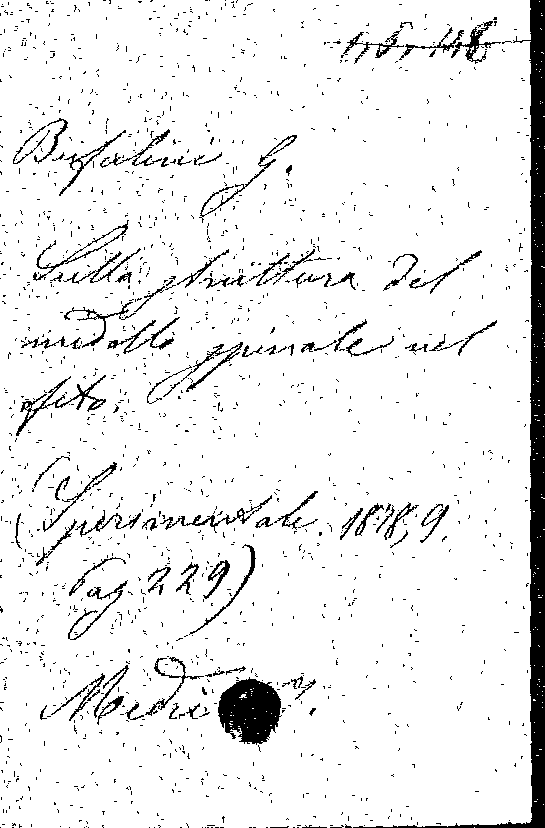 1, 5, 148
Bufalini G.
Sulla struttura del
midollo spinale nel
feto.
(Sperimentale. 1878, 9.
Pag 229)